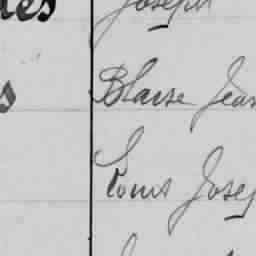 des Joseph
Blaise Jean
s
Louis Josep